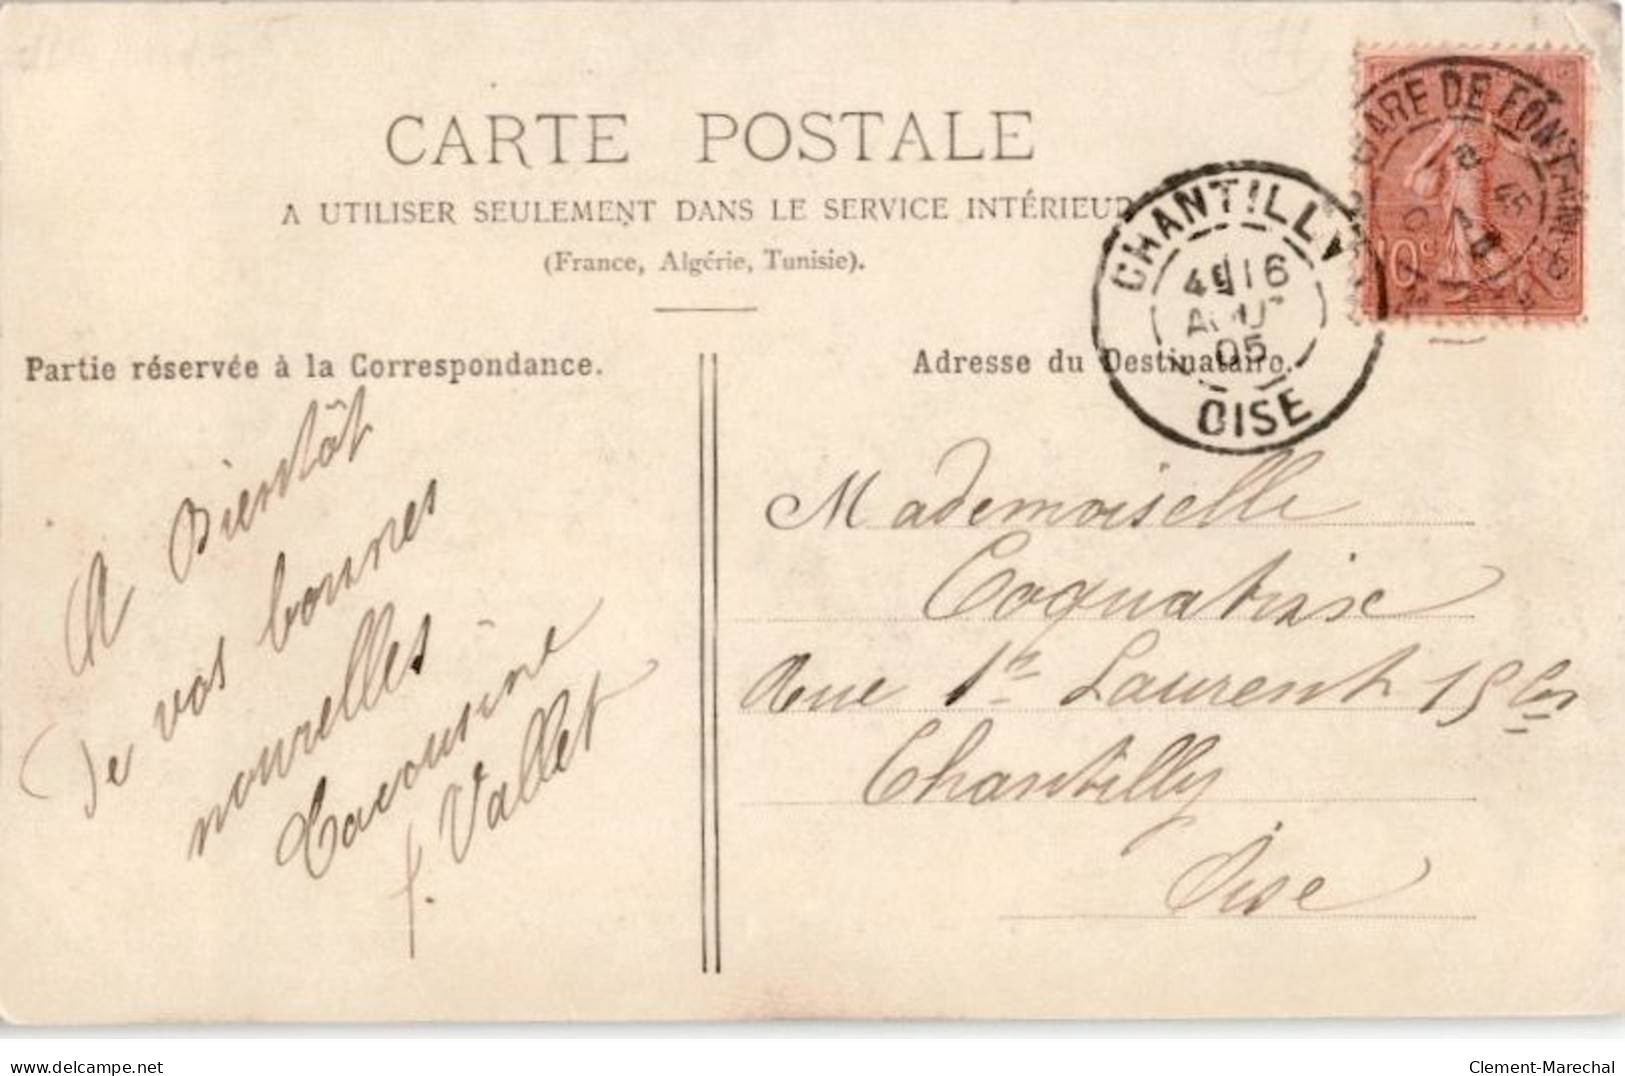 CARTE POSTALE
A UTILISER SEULEMENT DANS LE SERVICE INTÉRIEUR
(France, Algérie, Tunisie).
Partie réservée à la Correspondance.
A Bientôt
de vos bonnes
nouvelles
Ta cousine
f. Vallet
Adresse du Destinataire.
Mademoiselle
Coquatrix
Rue St Laurent 15 bis
Chantilly
Oise
CHANTILLY
4E 16
AOUT
05
OISE
GARE DE FONTAINEB
8 45
10c
delcampe.net
Clement-Marechal